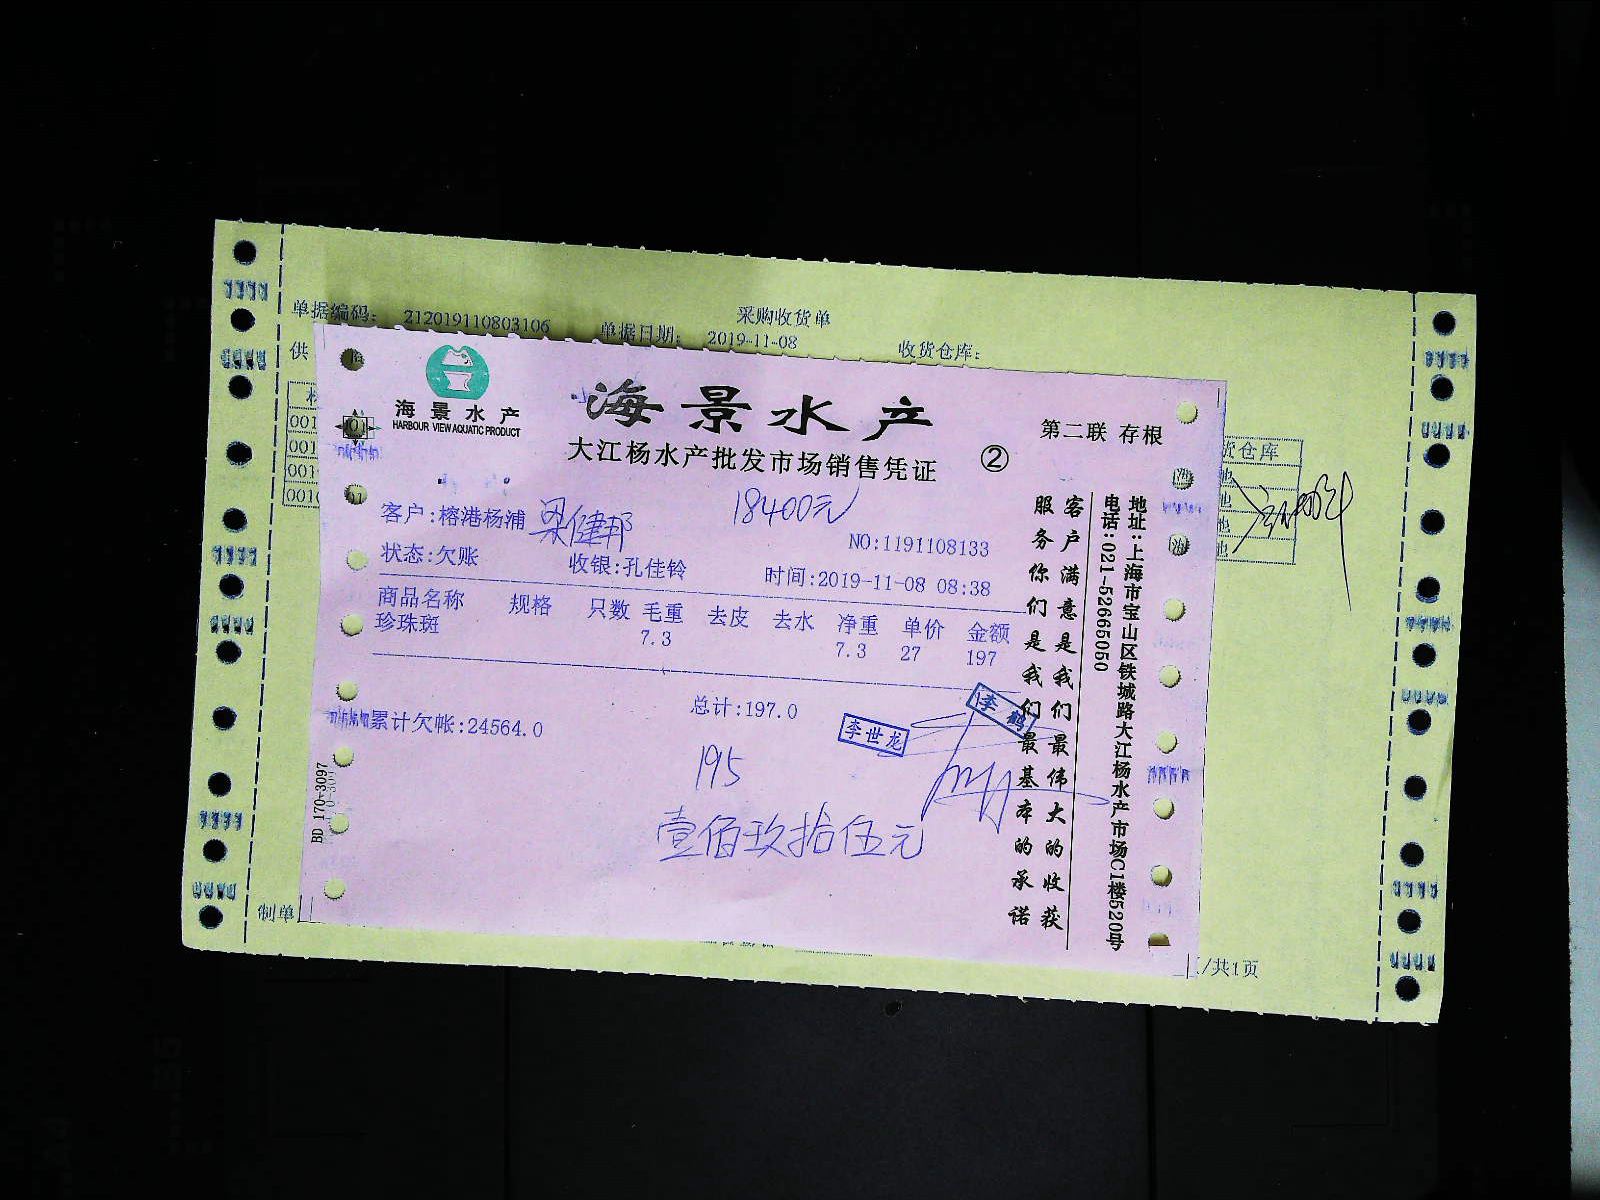 采购收货单
单据编码: 212019110803106 单据日期: 2019-11-08 收货仓库:
供
001
001
001
0010
货仓库
地
地
地
地
海景水产
HARBOUR VIEW AQUATIC PRODUCT
海景水产
大江杨水产批发市场销售凭证 ② 第二联 存根
18400元
客户:榕港杨浦 梁健邦
NO:1191108133
状态:欠账 收银:孔佳铃 时间:2019-11-08 08:38
商品名称 规格 只数 毛重 去皮 去水 净重 单价 金额
珍珠斑 7.3 7.3 27 197
总计:197.0
累计欠帐:24564.0
李世龙
李鹤
195
壹佰玖拾伍元
客户满意是我们最伟大的收获
服务你们是我们最基本的承诺
地址:上海市宝山区铁城路大江杨水产市场C1楼520号
电话:021-52665050
BD 170-3097
制单
/共1页